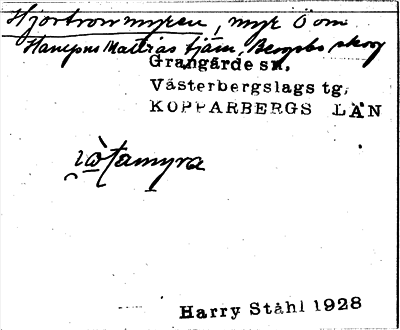 Hjortronmyren, myr Ö om
Hampus Mattias tjärn, Bergsbo skog
Grangärde sn.
Västerbergslags tg.
KOPPARBERGS LÄN
Harry Ståhl 1928